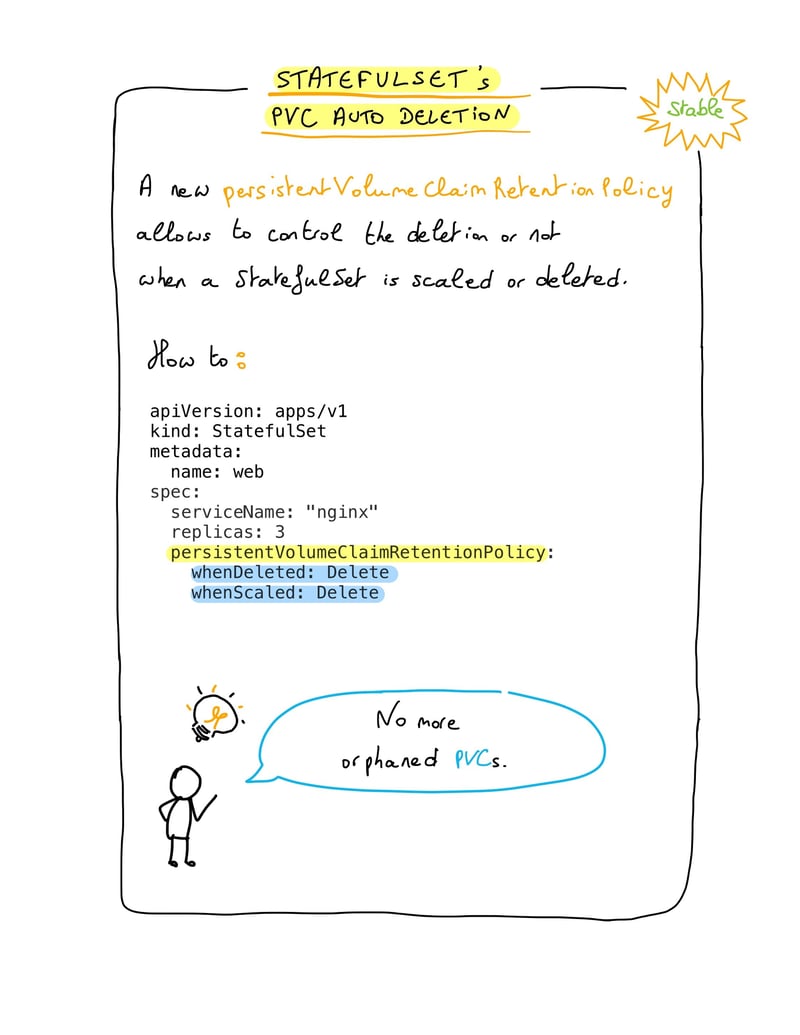 STATEFULSET's
PVC AUTO DELETION
Stable
A new persistentVolumeClaimRetentionPolicy
allows to control the deletion or not
when a StatefulSet is scaled or deleted.
How to:
apiVersion: apps/v1
kind: StatefulSet
metadata:
  name: web
spec:
  serviceName: "nginx"
  replicas: 3
  persistentVolumeClaimRetentionPolicy:
    whenDeleted: Delete
    whenScaled: Delete
No more
orphaned PVCs.